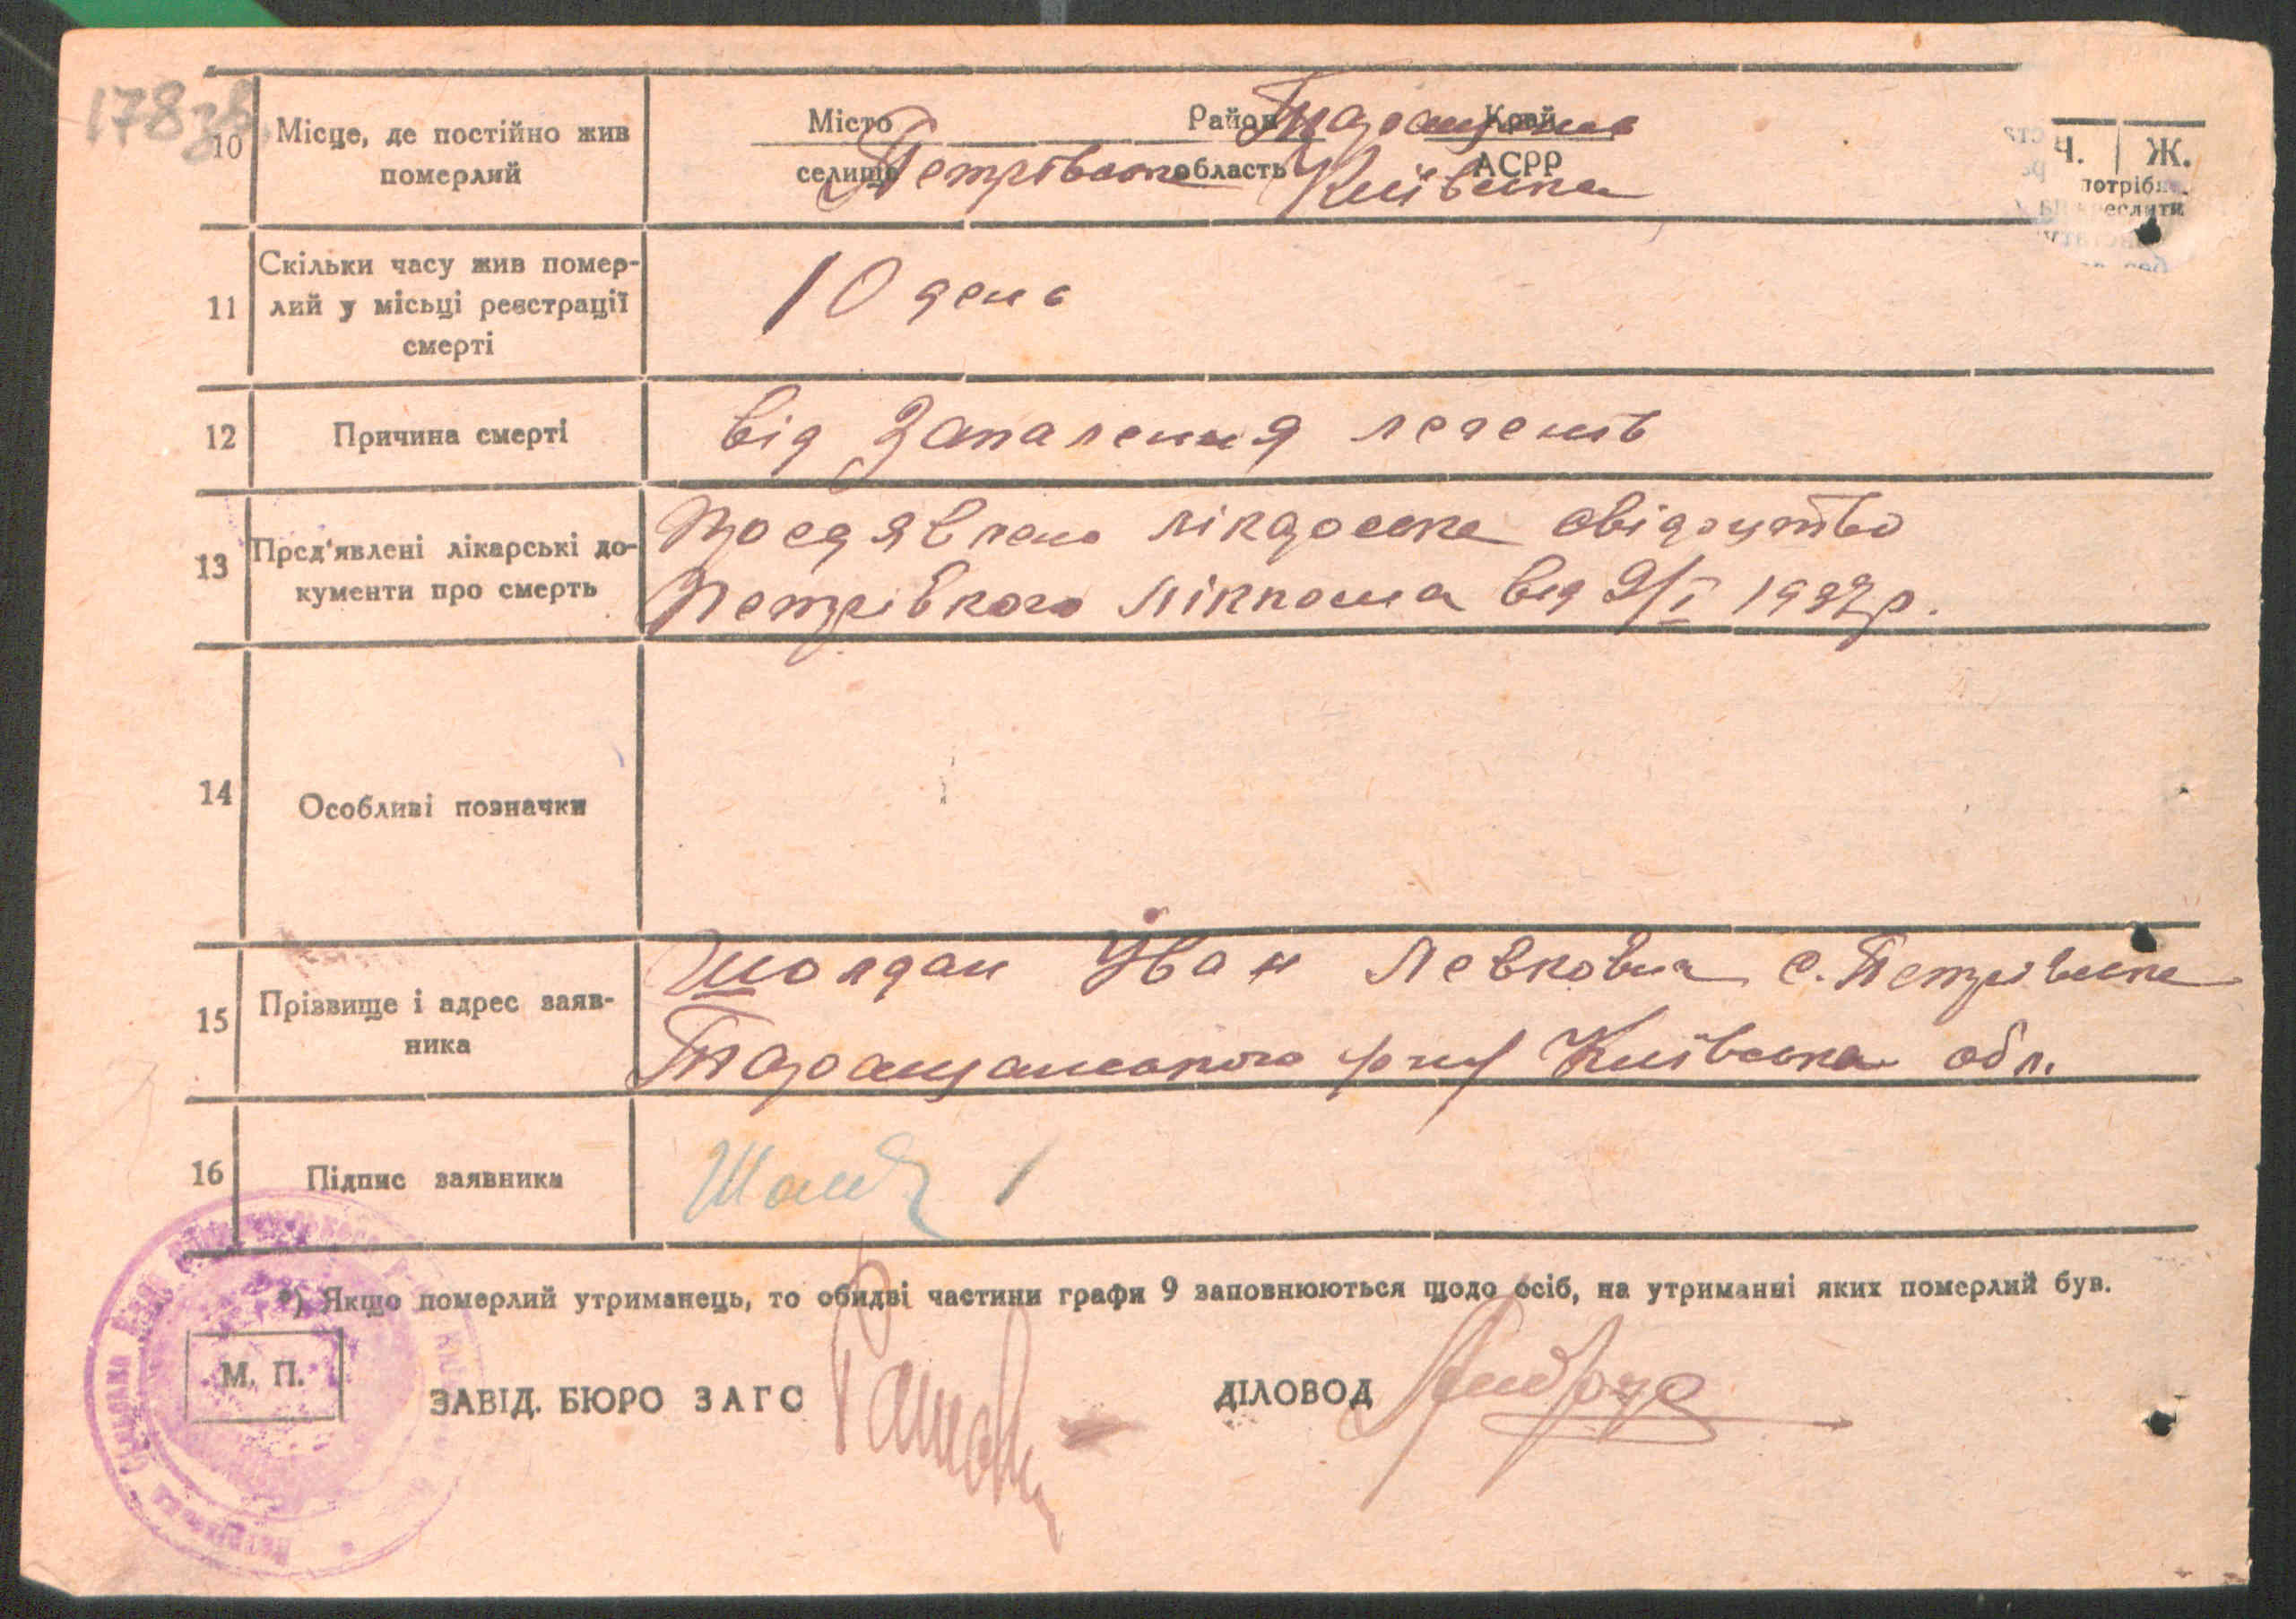 178зв.
10 Місце, де постійно жив померлий
Місто Район Таращанск Край
селище Петрівське область Київська АСРР
Ч. | Ж.
потрібн
креслити
11 Скільки часу жив помер-
лий у місьці реєстрації
смерті
10 день
12 Причина смерті
від запалення легенів
13 Пред'явлені лікарські до-
кументи про смерть
предявлено лікарське свідоцтво
Петрівкого лікпома від 9/I 1937р.
14 Особливі позначки
15 Прізвище і адрес заяв-
ника
Шолдан Іван Левковил с. Петрівське
Таращанського р-ну Київська обл.
16 Підпис заявника
*) Якщо померлий утриманець, то обидві частини графи 9 заповнюються щодо осіб, на утриманні яких померлий був.
М. П.
ЗАВІД. БЮРО ЗАГС
ДІЛОВОД